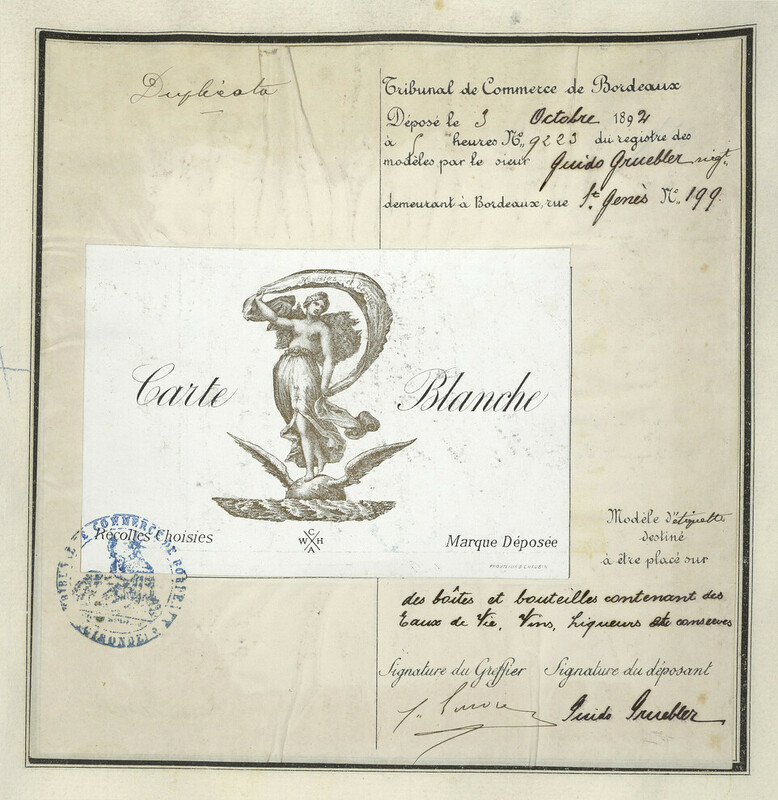 Duplicata
Tribunal de Commerce de Bordeaux
Déposé le 3 Octobre 1892
à heures N°. 9223 du registre des
modèles par le sieur Guido Gruebler
demeurant à Bordeaux, rue St. Genès N°. 199
Carte Blanche
Récoltes Choisies
C
W H
A
Marque Déposée
Modèle d'étiquette
destiné
à être placé sur
des boîtes et bouteilles contenant des
Eaux de Vie, Vins, Liqueurs conserves
TRIBUNAL DE COMMERCE DE BORDEAUX
(GIRONDE)
Signature du Greffier Signature du déposant
Guido Gruebler